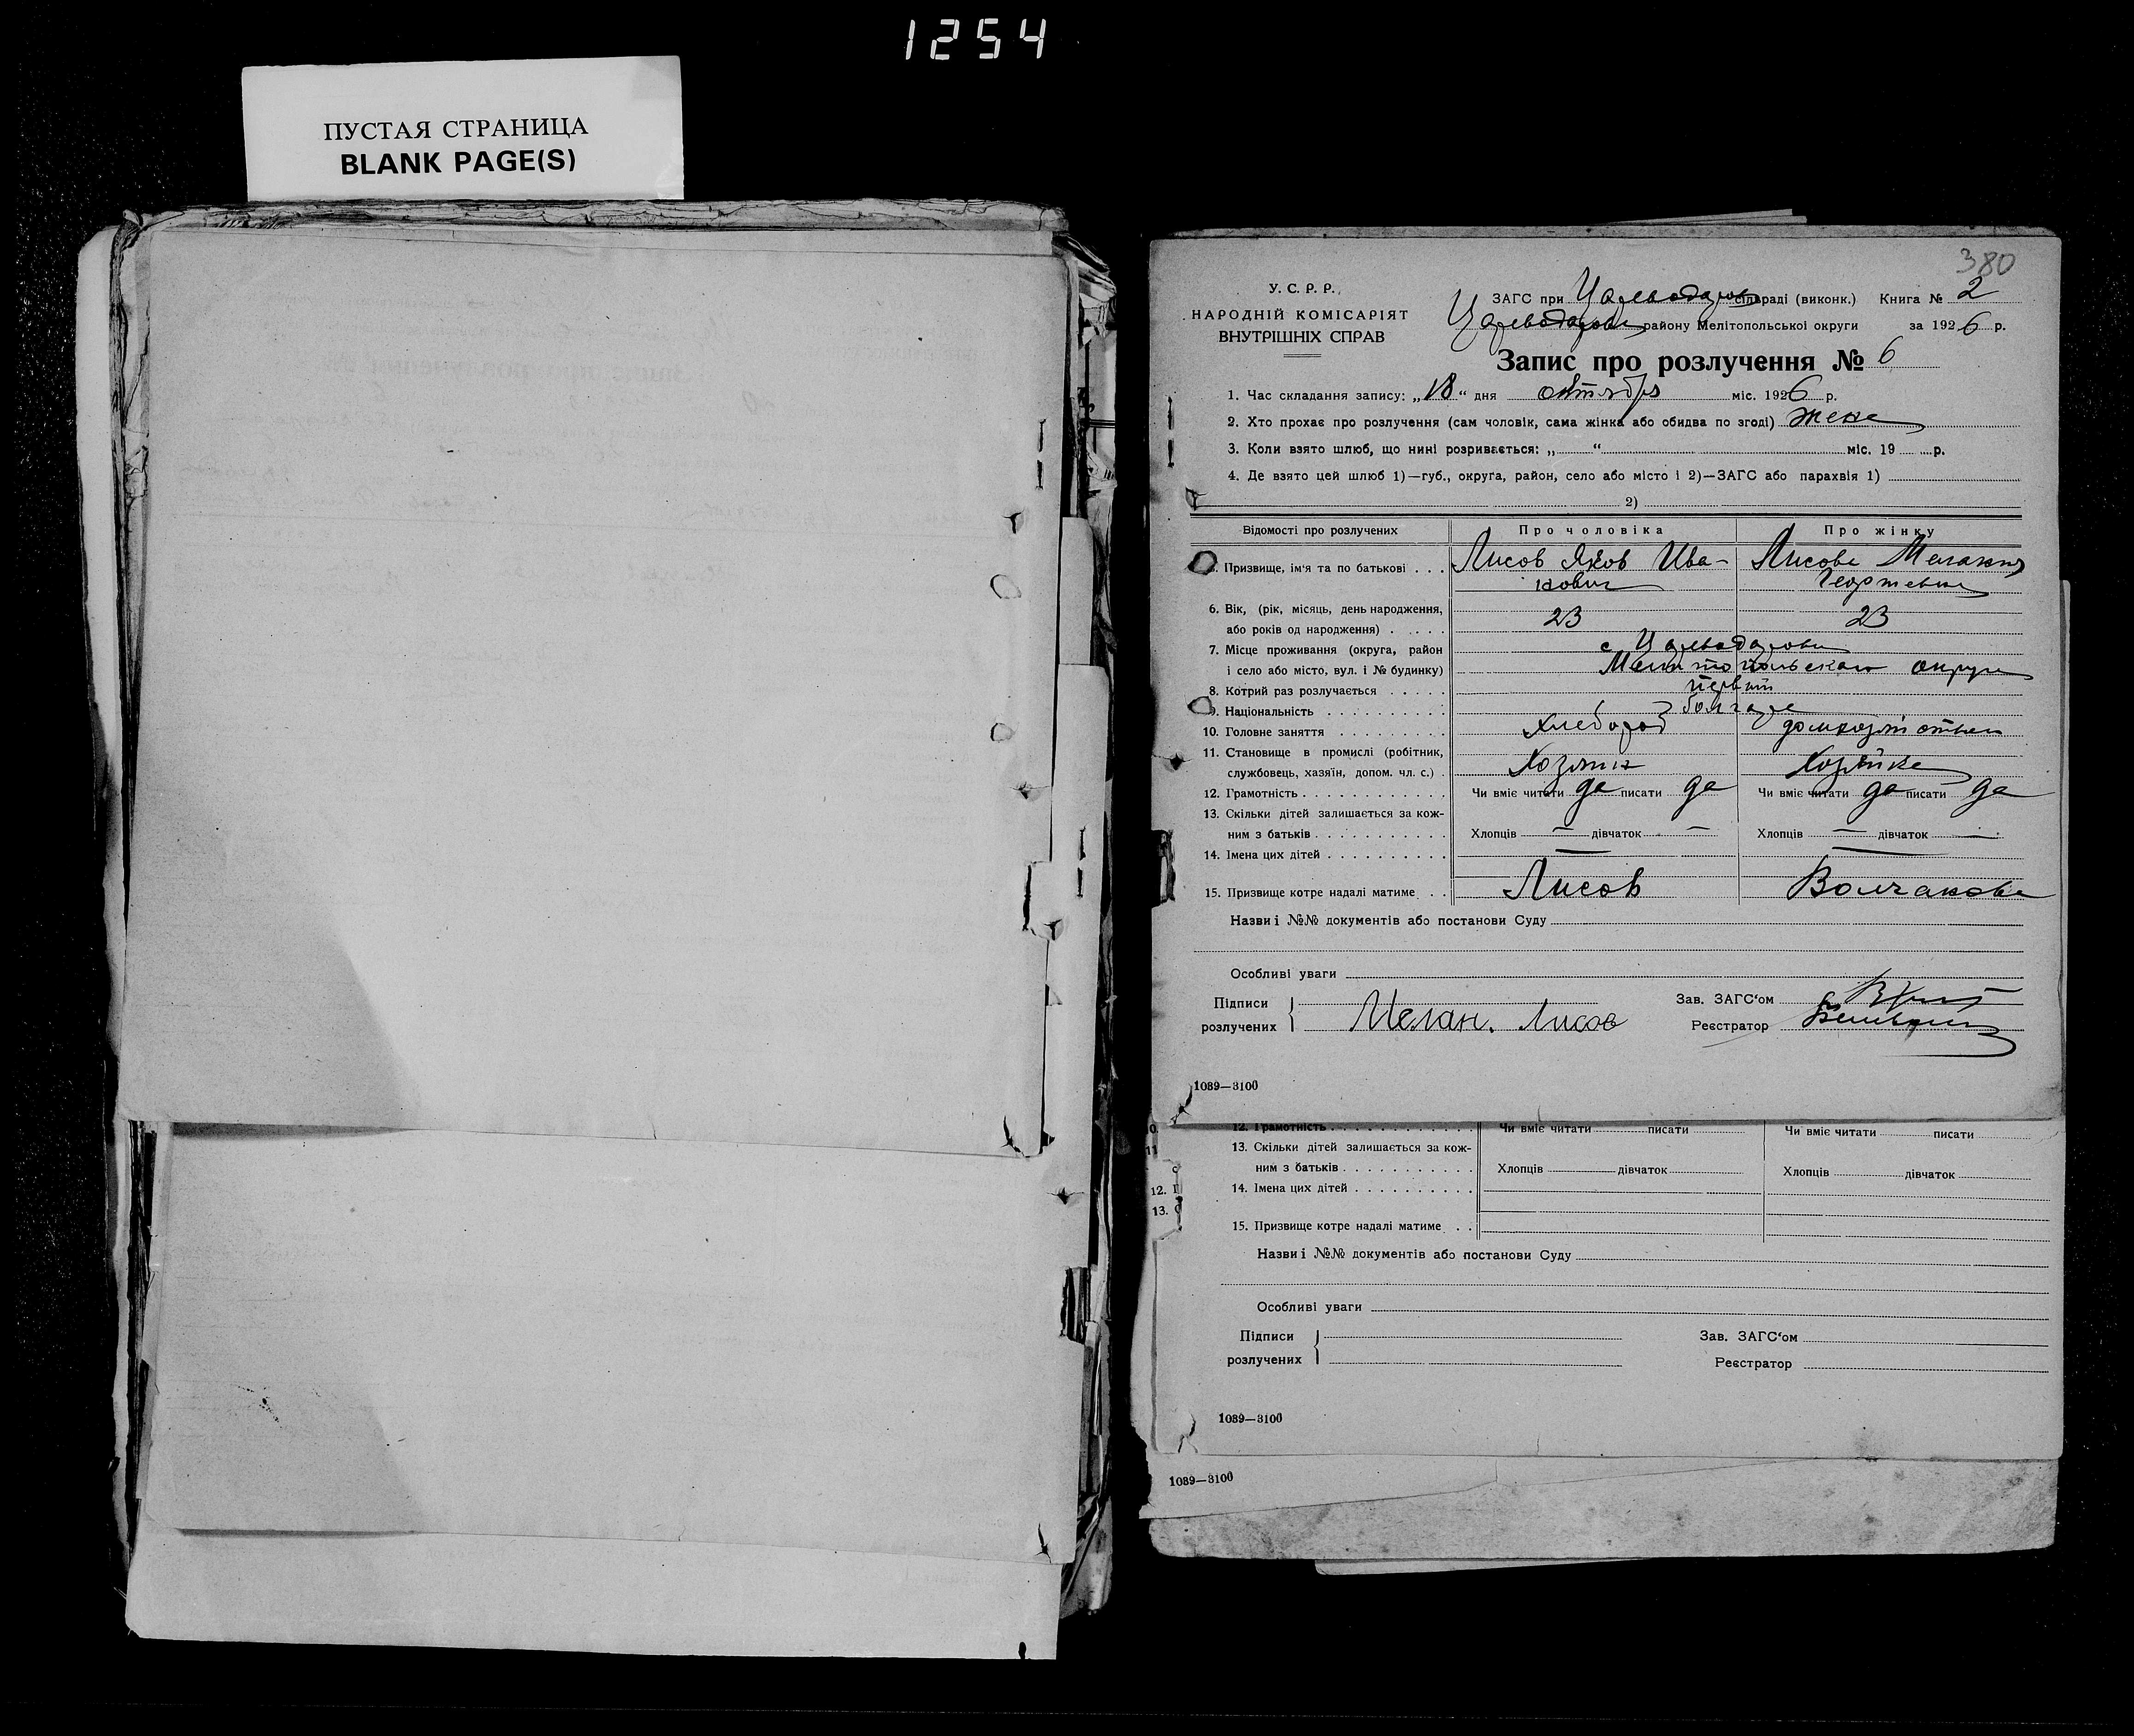 1254
ПУСТАЯ СТРАНИЦА
BLANK PAGE(S)
380
У. С. Р. Р.
НАРОДНІЙ КОМІСАРІЯТ
ВНУТРІШНІХ СПРАВ
ЗАГС при Царедаровск сільраді (виконк.) Книга № 2
району Мелітопольської округи за 1926 р.
Запис про розлучення № 6
1. Час складання запису: „18“ дня октября міс. 1926 р.
2. Хто прохає про розлучення (сам чоловік, сама жінка або обидва по згоді) жена
3. Коли взято шлюб, що нині розривається: „ “ міс. 19 р.
4. Де взято цей шлюб 1)—губ., округа, район, село або місто і 2)—ЗАГС або парахвія 1)
2)
Відомості про розлучених Про чоловіка Про жінку
Призвище, ім'я та по батькові . . . Лисов Яков Ива- Лисова Мелания
нович Георгиевна
6. Вік, (рік, місяць, день народження,
або років од народження) . . . . . 23 23
7. Місце проживання (округа, район с.
і село або місто, вул. і № будинку) Мелитопольского округа
8. Котрий раз розлучається . . . . . первый
9. Національність . . . . . . . . . . болгаре
10. Головне заняття . . . . . . . . . хлебороб домхозяйством
11. Становище в промислі (робітник,
службовець, хазяїн, допом. чл. с.) . Хозяин Хозяйка
12. Грамотність . . . . . . . . . . . . Чи вміє читати да писати да Чи вміє читати да писати да
13. Скільки дітей залишається за кож-
ним з батьків . . . . . . . . . . . Хлопців — дівчаток — Хлопців — дівчаток —
14. Імена цих дітей . . . . . . . . . . — —
15. Призвище котре надалі матиме . . Лисов Волчанова
Назви і №№ документів або постанови Суду
Особливі уваги
Підписи Зав. ЗАГС‘ом
розлучених Мелан. Лисов Реєстратор
1089—3100
12. Грамотність . . . . . . . . . . . . Чи вміє читати писати Чи вміє читати писати
13. Скільки дітей залишається за кож-
ним з батьків . . . . . . . . . . . Хлопців дівчаток Хлопців дівчаток
12.
14. Імена цих дітей . . . . . . . . . .
13.
15. Призвище котре надалі матиме . .
Назви і №№ документів або постанови Суду
Особливі уваги
Підписи Зав. ЗАГС‘ом
розлучених Реєстратор
1089—3100
1089—3100